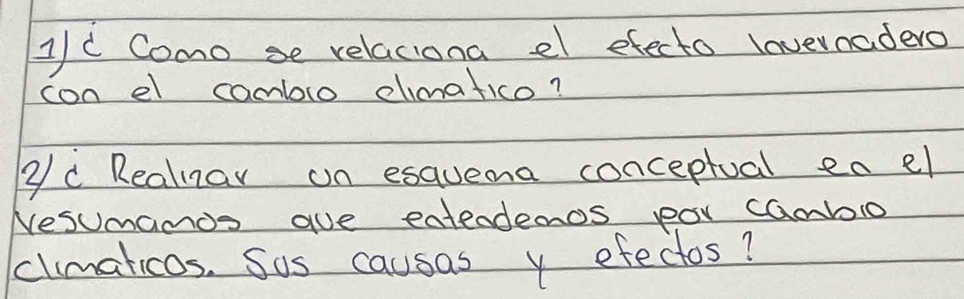 1) ¿ Como se relaciona el efecto lavernadero
con el cambio climatico?
2) ¿ Realizar un esquema conceptual en el
resumamos que entendemos por cambio
climaticos. Sus causas y efectos?